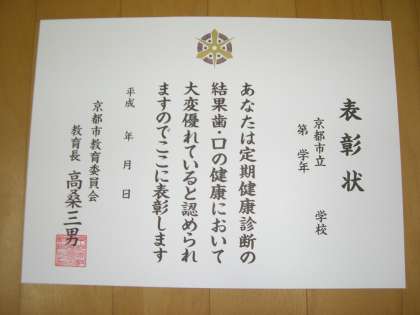 表彰状
京都市立　　　学校
第　学年
あなたは定期健康診断の
結果歯・口の健康において
大変優れていると認められ
ますのでここに表彰します
平成　年　月　日
京都市教育委員会
教育長　高桑三男